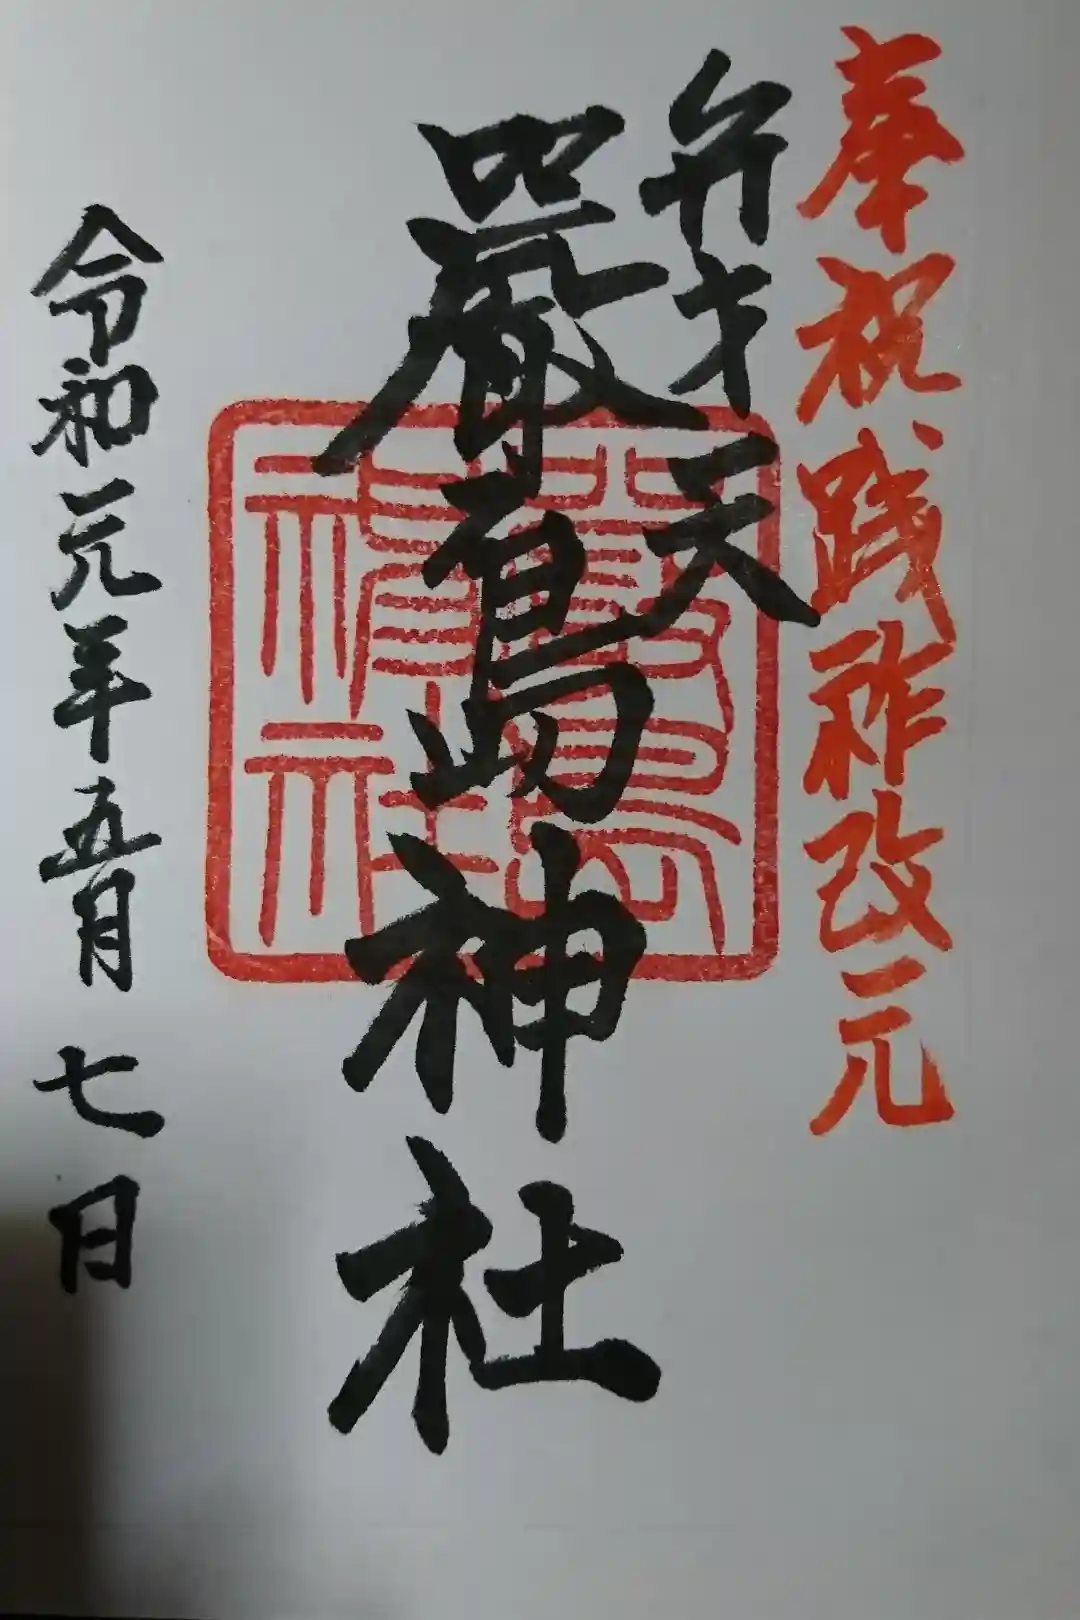 奉祝 践祚改元
弁才天
嚴島神社
嚴島神社
令和元年五月七日